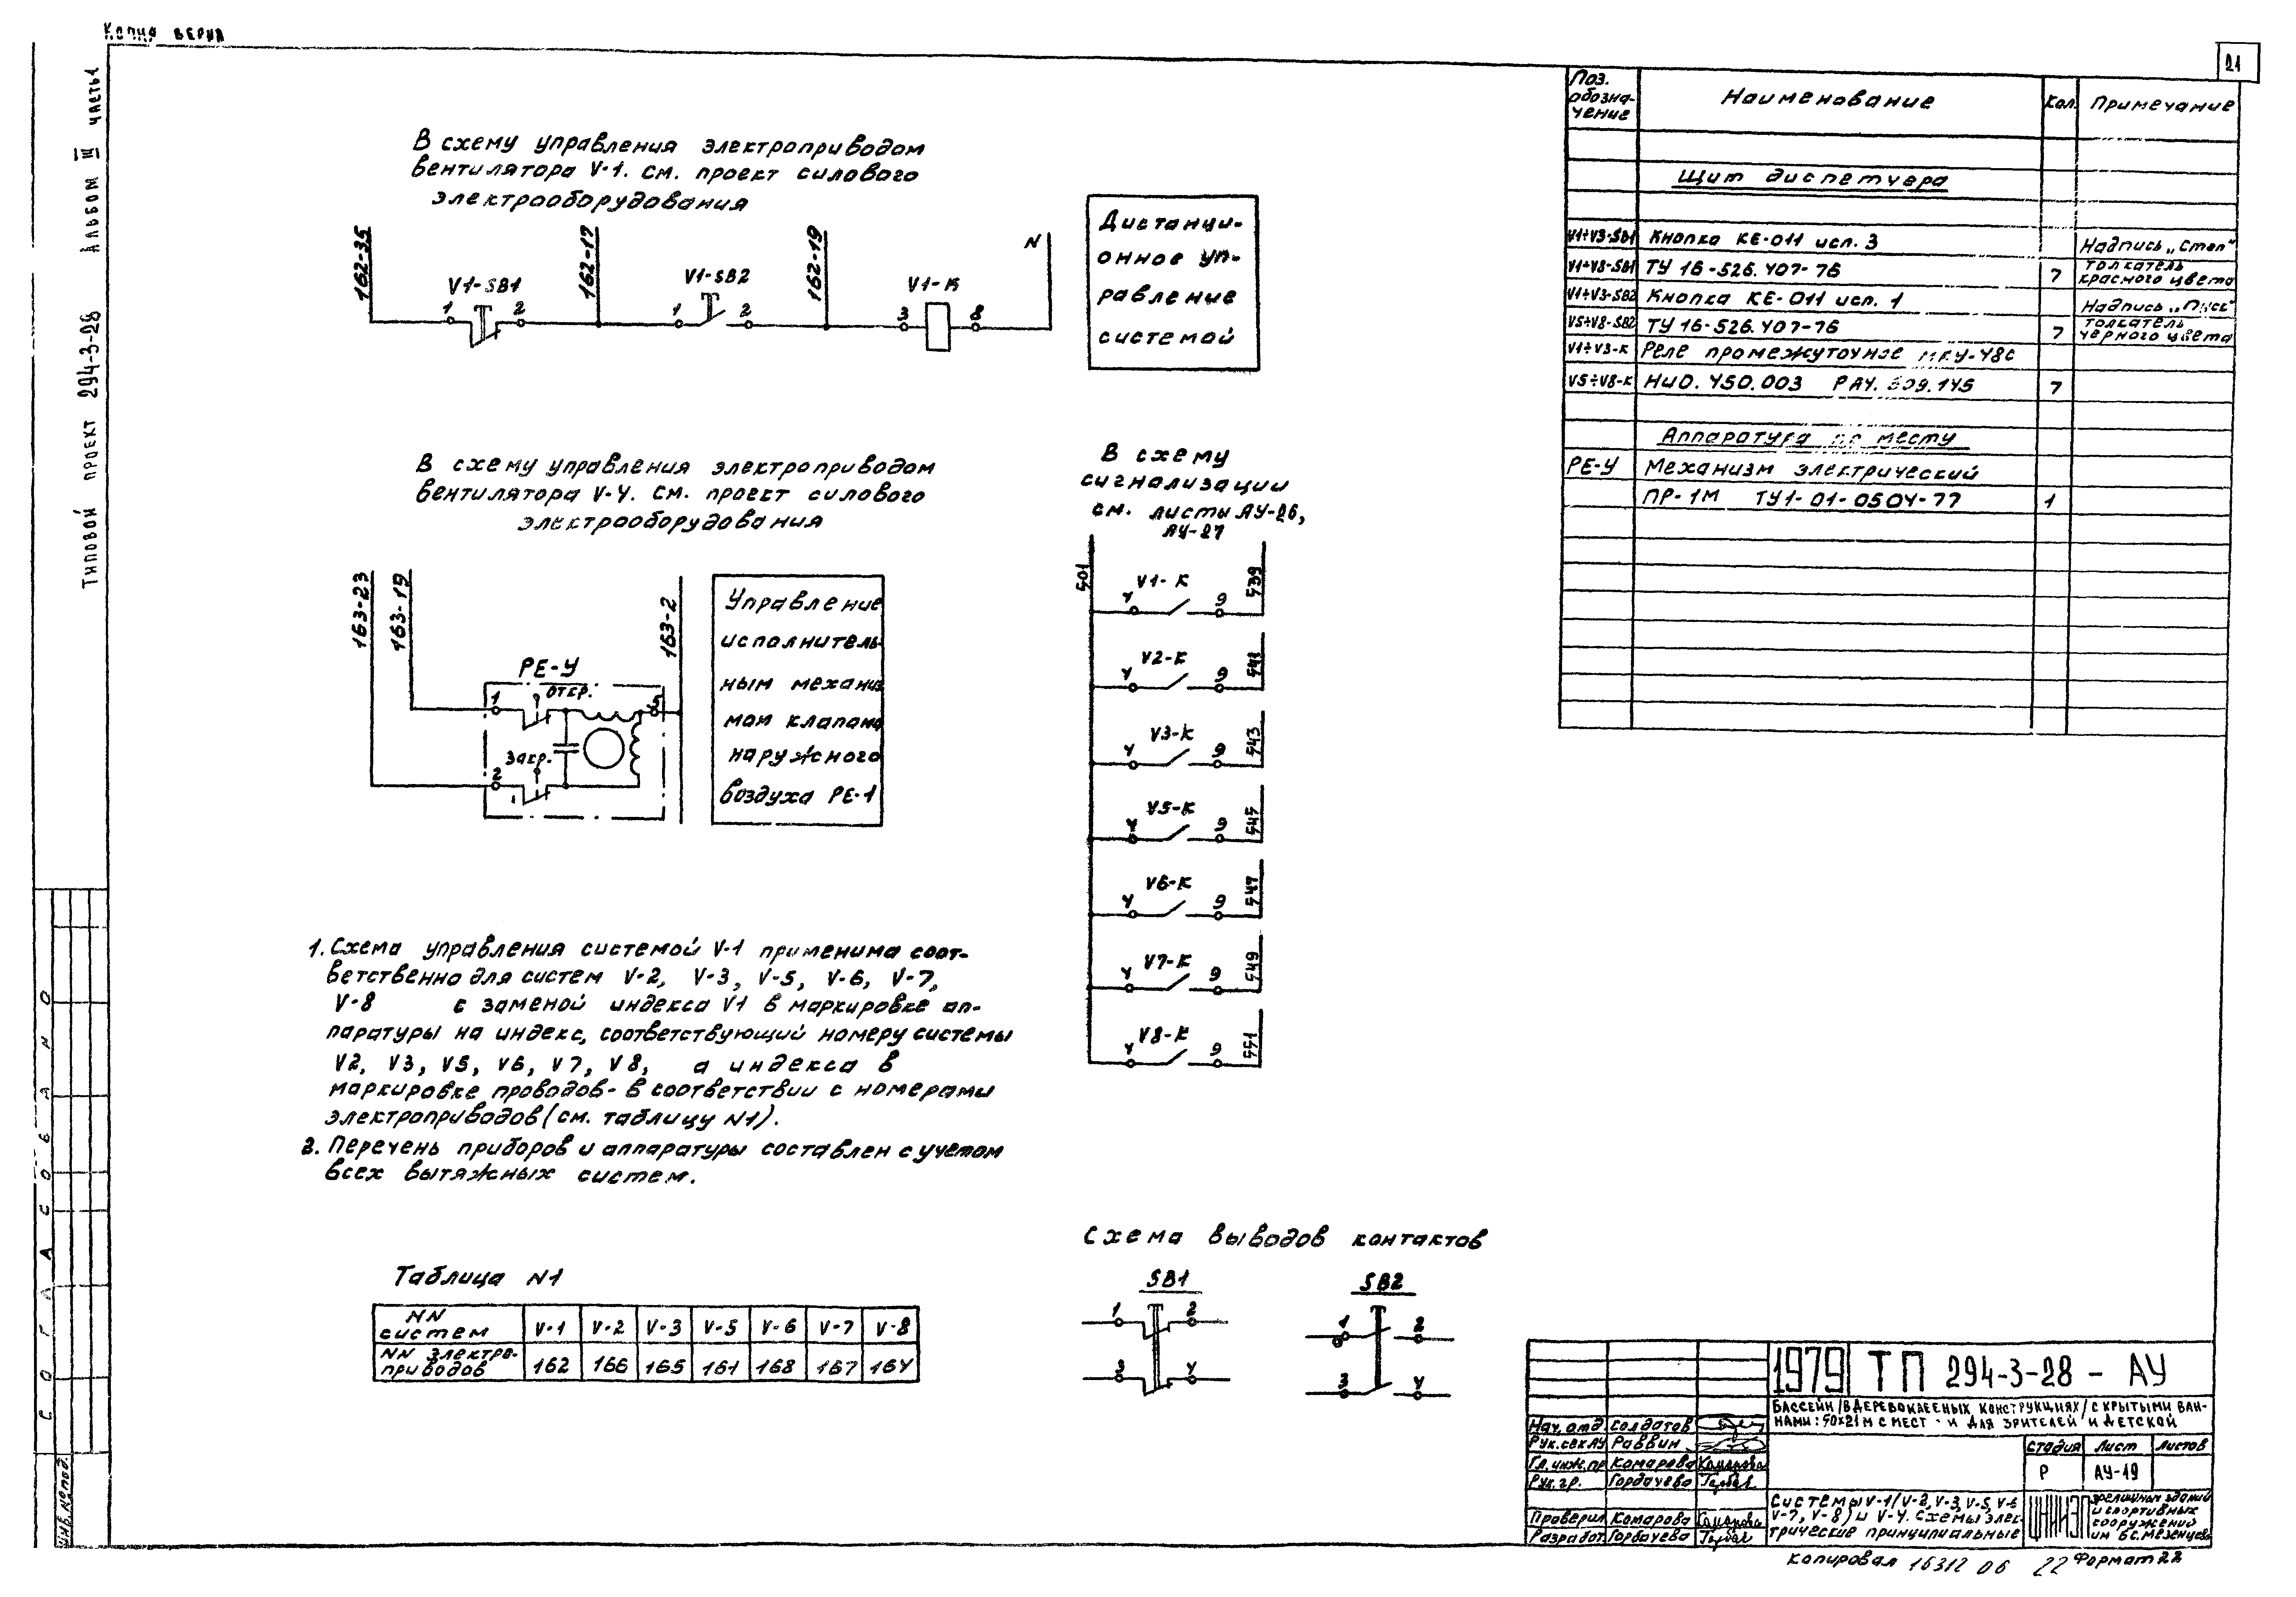 Копия верна
21
Типовой проект 294-3-28 Альбом III часть 1
В схему управления электроприводом
вентилятора V-1. см. проект силового
электрооборудования
162-35
162-17
162-19
N
V1-SB1
V1-SB2
V1-К
1 2
1 2
3 8
Дистанци-
онное уп-
равление
системой
В схему управления электроприводом
вентилятора V-4. см. проект силового
электрооборудования
163-23
163-19
163-2
РЕ-4
1 откр. 5
закр.
2
Управление
исполнитель-
ным механиз
мом клапана
наружного
воздуха РЕ-1
В схему
сигнализации
см. листы АУ-26,
АУ-27
501
539
V1-К
4 9
541
V2-К
4 9
543
V3-К
4 9
545
V5-К
4 9
547
V6-К
4 9
549
V7-К
4 9
551
V8-К
4 9
1. Схема управления системой V-1 применима соот-
ветственно для систем V-2, V-3, V-5, V-6, V-7,
V-8 с заменой индекса V1 в маркировке ап-
паратуры на индекс, соответствующий номеру системы
V2, V3, V5, V6, V7, V8, а индекса в
маркировке проводов- в соответствии с номерами
электроприводов (см. таблицу N1).
2. Перечень приборов и аппаратуры составлен с учетом
всех вытяжных систем.
Таблица N1
NN систем V-1 V-2 V-3 V-5 V-6 V-7 V-8
NN электро-
приводов 162 166 165 161 168 167 164
Схема выводов контактов
SB1
SB2
1 2
3 4
1 2
3 4
Поз. обозна-чение Наименование Кол. Примечание
Щит диспетчера
V1÷V3-SB1 Кнопка КЕ-011 исп. 3 Надпись „Стоп"
V1÷V8-SB1 ТУ 16-526.407-76 7 толкатель красного цвета
V1÷V3-SB2 Кнопка КЕ-011 исп. 1 Надпись „Пуск"
V5÷V8-SB2 ТУ 16-526.407-76 7 толкатель черного цвета
V1÷V3-К Реле промежуточное МКУ-48с
V5÷V8-К НИО.450.003 РА4.509.145 7
Аппаратура по месту
РЕ-4 Механизм электрический
ПР-1М ТУ1-01-0504-77 1
СОГЛАСОВАНО
Инв. № подл.
1979 ТП 294-3-28 - АУ
Бассейн /в деревоклееных конструкциях/ с крытыми ван-
нами: 50х21м с мест и для зрителей и детской
Нач. отд. Солдатов
Рук. сек АУ Раввин
Гл. инж. пр Комарова Комарова
Рук. гр. Горбачева
Проверил Комарова Комарова
Разработ Горбачева
Стадия Лист Листов
Р АУ-19
Системы V-1 (V-2, V-3, V-5, V-6
V-7, V-8) и V-4. Схемы элек-
трические принципиальные
ЦНИИЭП
зрелищных зданий
и спортивных
сооружений
им Б.С. Мезенцева
Копировал 16312 06 22 Формат 22